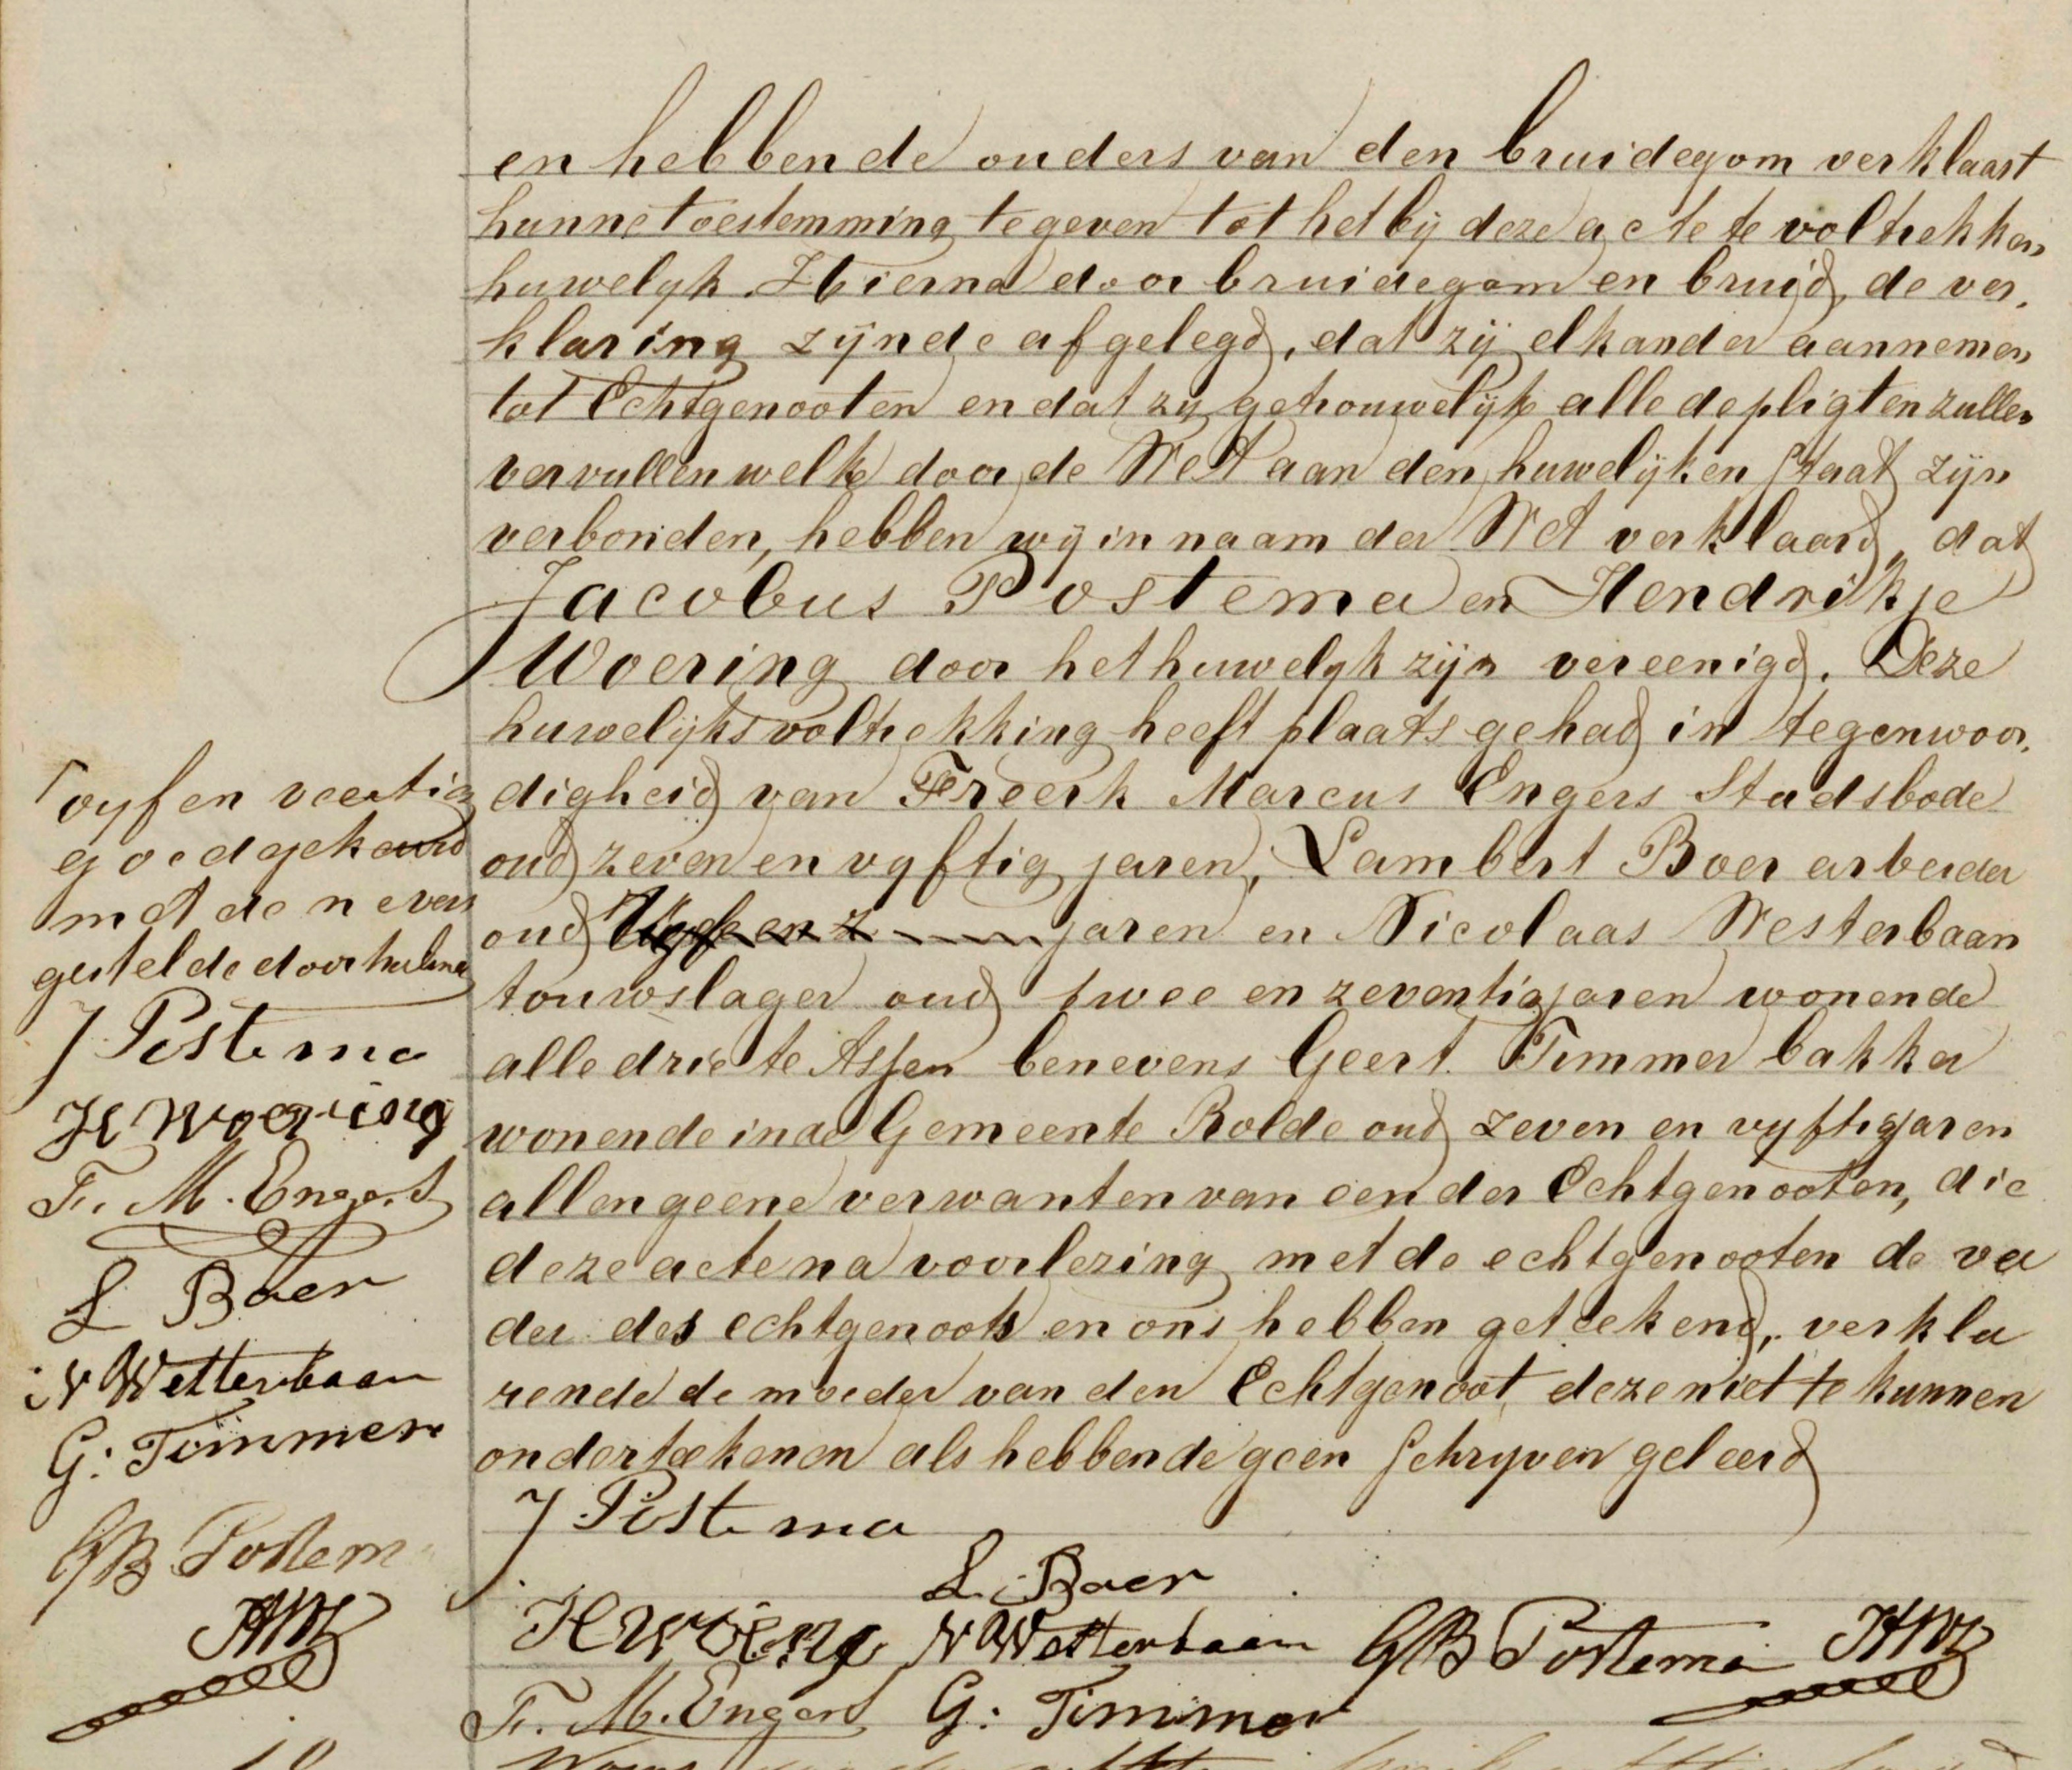 en hebben de ouders van den bruidegom verklaart
hunne toestemming te geven tot het by deze acte te voltrekken
huwelyk. Hierna door bruidegom en bruid, de ver,
klaring zijnde afgelegd, dat zij elkander aannemen
tot Echtgenooten en dat zy getrouwelijk alle de pligten zullen
vervullen welke door de Wet aan den huwelijken staat zijn
verbonden, hebben wij in naam der Wet verklaard, dat
Jacobus Postema en Hendrikje
Woering door het huwelyk zijn vereenigd. Deze
huwelijksvoltrekking heeft plaats gehad in tegenwoor,
digheid van Freerk Marcus Engers Stadsbode
oud zeven en vyftig jaren, Lambert Boer arbeider
oud Vyf en z jaren en Nicolaas Westerbaan
touwslager oud twee en zeventig jaren wonende
alle drie te Assen benevens Geert Timmer bakker
wonende in de Gemeente Rolde oud zeven en vyftig jaren
allen geene verwanten van een der Echtgenooten, die
deze acte na voorlezing met de echtgenooten de va
der des echtgenoots en ons hebben geteekend, verkla
rende de moeder van den Echtgenoot deze niet te kunnen
onderteekenen als hebbende geen schryven geleerd
J Postema
L. Boer
H Woering N Westerbaan GB Postema
F. M. Engers G: Timmer
vyf en veertig
goedgekeurd
met de nevens
gestelde doorhaling
J Postema
H Woering
F. M. Engers
L Boer
N Westerbaan
G: Timmer
GB Postem
10